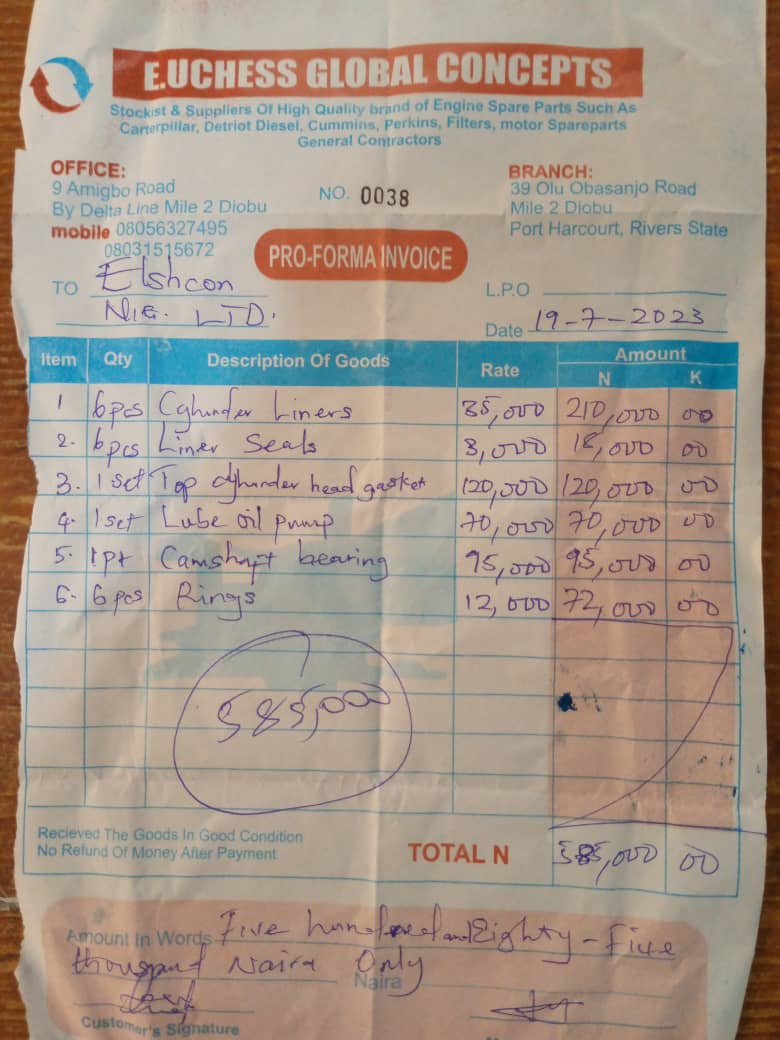 E.UCHESS GLOBAL CONCEPTS
Stockist & Suppliers Of High Quality brand of Engine Spare Parts Such As
Carterpillar, Detriot Diesel, Cummins, Perkins, Filters, motor Spareparts
General Contractors
OFFICE:
9 Amigbo Road
By Delta Line Mile 2 Diobu
mobile 08056327495
08031515672
NO. 0038
BRANCH:
39 Olu Obasanjo Road
Mile 2 Diobu
Port Harcourt, Rivers State
PRO-FORMA INVOICE
TO Elshcon
Nig. LTD.
L.P.O
Date 19-7-2023
Item Qty Description Of Goods Rate Amount
N K
1 6pcs Cylinder Liners 35,000 210,000 00
2. 6pcs Liner Seals 3,000 18,000 00
3. 1 set Top cylinder head gasket 120,000 120,000 00
4. 1set Lube oil pump 70,000 70,000 00
5. 1pt Camshaft bearing 95,000 95,000 00
6. 6 pcs Rings 12,000 72,000 00
585,000
Recieved The Goods In Good Condition
No Refund Of Money After Payment
TOTAL N 585,000 00
Amount In Words Five hundred and Eighty-Five
thousand Naira Only
Naira
Customer's Signature